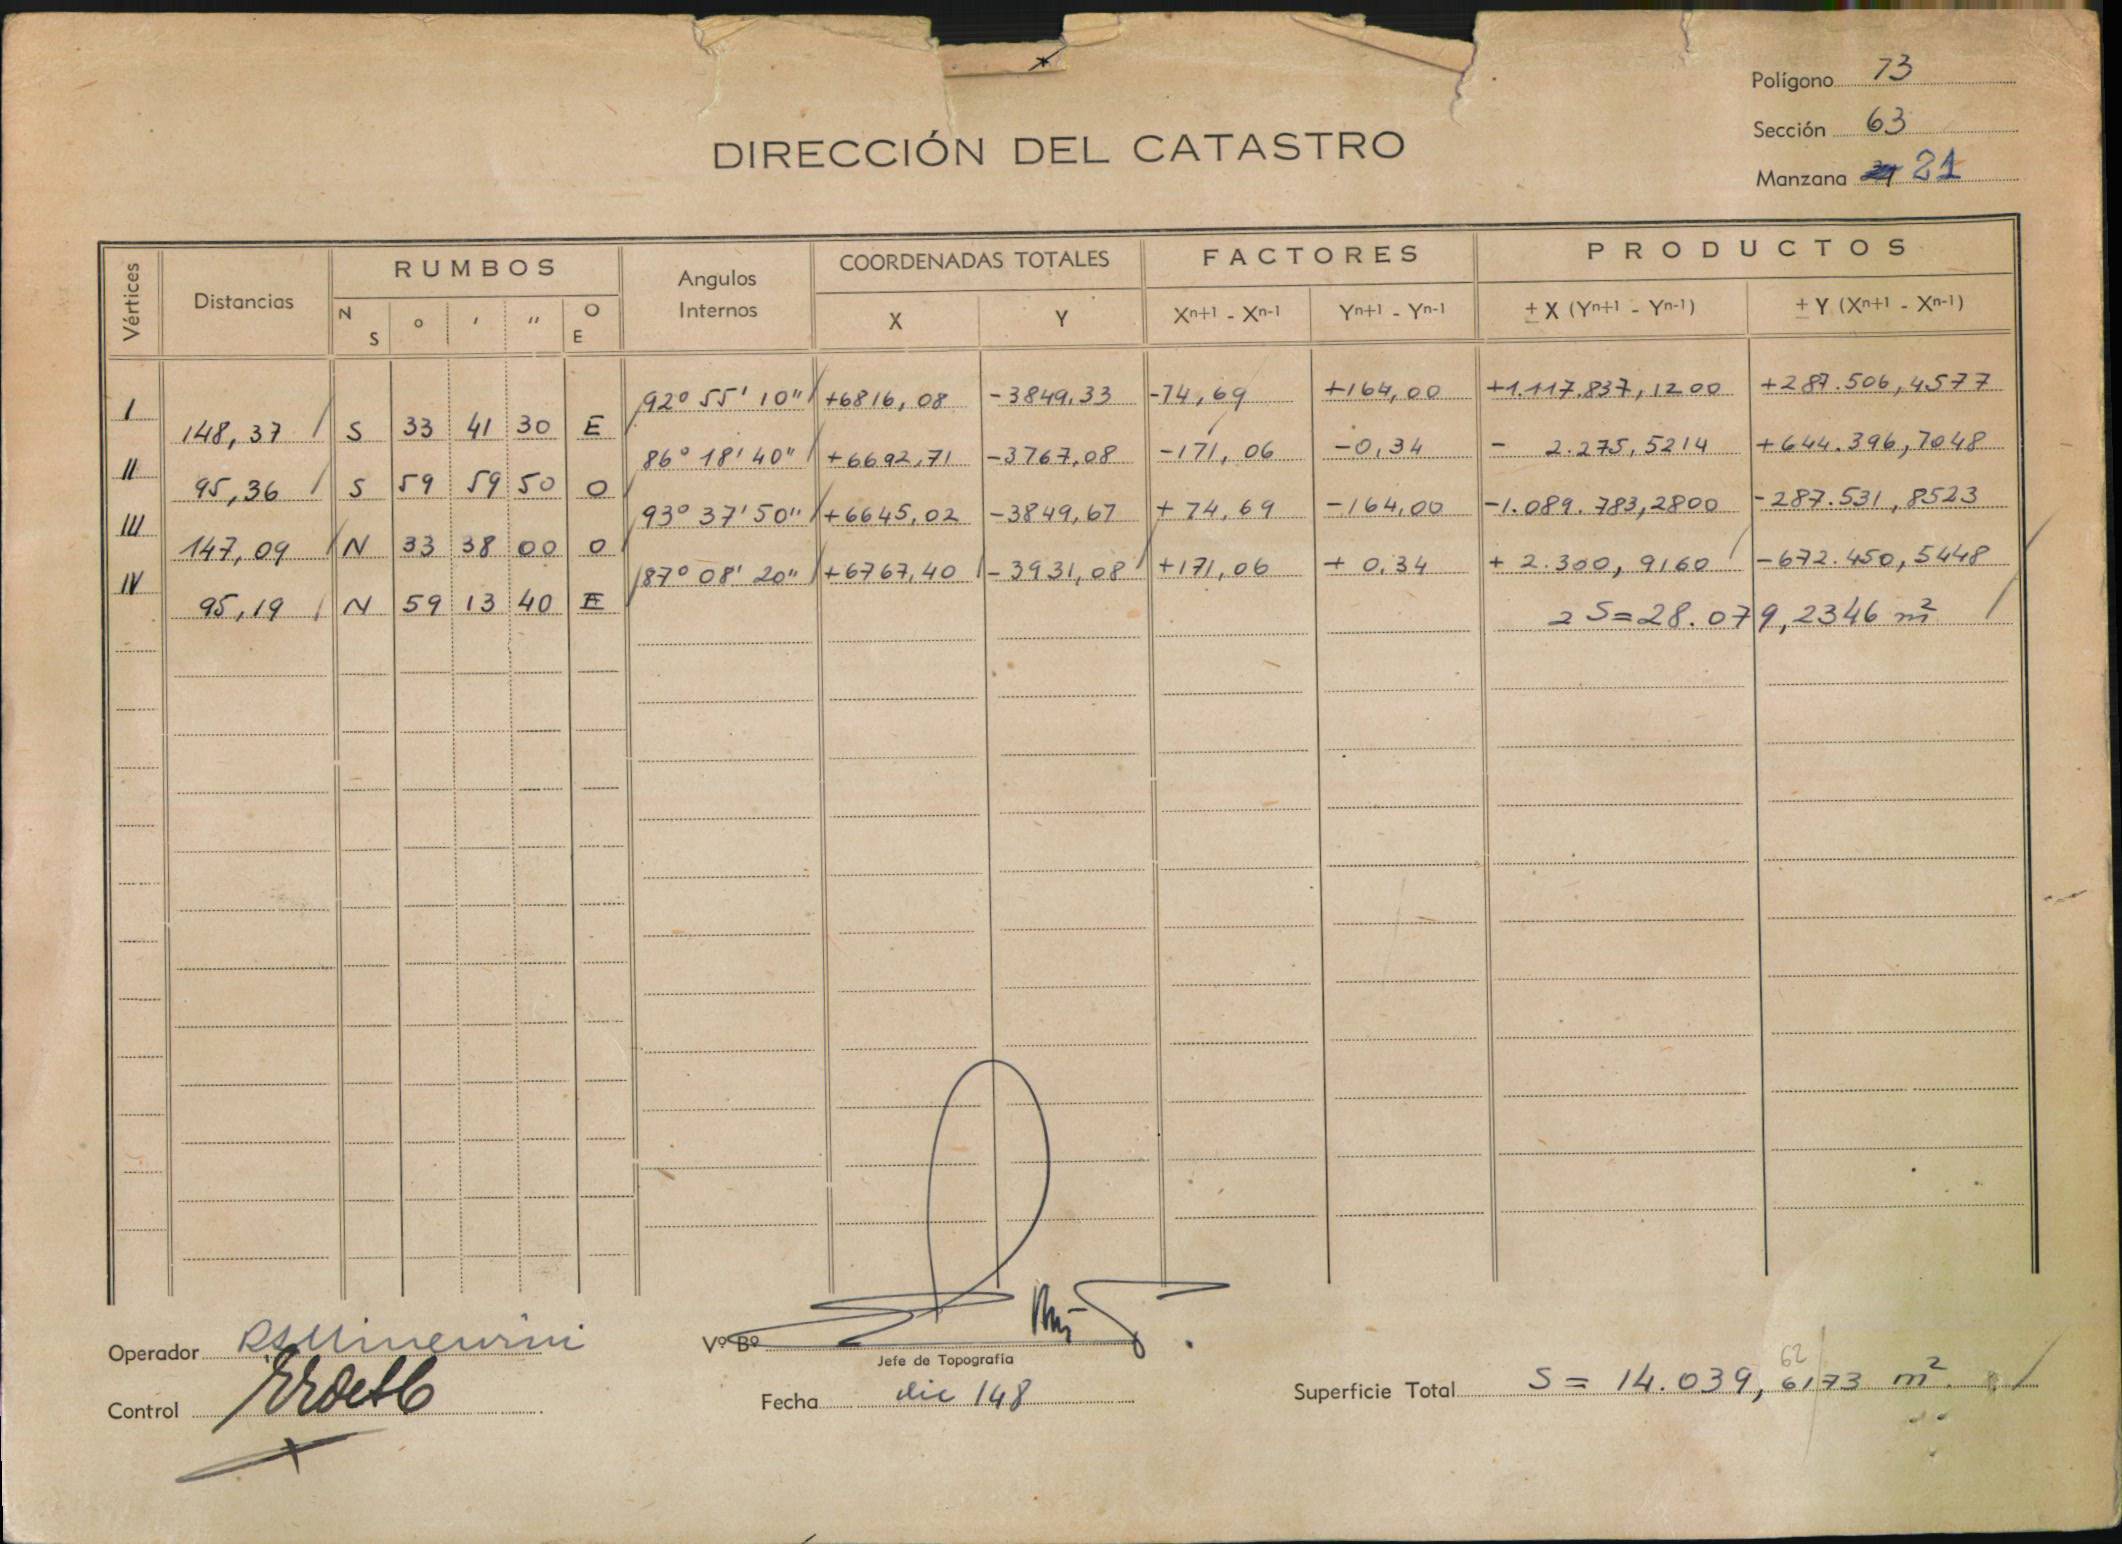 Polígono 73
Sección 63
Manzana 21
DIRECCIÓN DEL CATASTRO
Vértices Distancias RUMBOS Angulos Internos COORDENADAS TOTALES FACTORES PRODUCTOS
N S ° ' " O E X Y Xⁿ⁺¹ - Xⁿ⁻¹ Yⁿ⁺¹ - Yⁿ⁻¹ ± X (Yⁿ⁺¹ - Yⁿ⁻¹) ± Y (Xⁿ⁺¹ - Xⁿ⁻¹)
I 92° 55' 10" +6816,08 -3849,33 -74,69 +164,00 +1.117.837,1200 +287.506,4577
148,37 S 33 41 30 E
II 86° 18' 40" +6692,71 -3767,08 -171,06 -0,34 - 2.275,5214 +644.396,7048
95,36 S 59 59 50 O
III 93° 37' 50" +6645,02 -3849,67 +74,69 -164,00 -1.089.783,2800 -287.531,8523
147,09 N 33 38 00 O
IV 87° 08' 20" +6767,40 -3931,08 +171,06 + 0,34 + 2.300,9160 -672.450,5448
95,19 N 59 13 40 E
2 S = 28.079,2346 m²
Operador
Vº Bº
Jefe de Topografía
Control
Fecha dic 148
Superficie Total S = 14.039,6173 m²
62